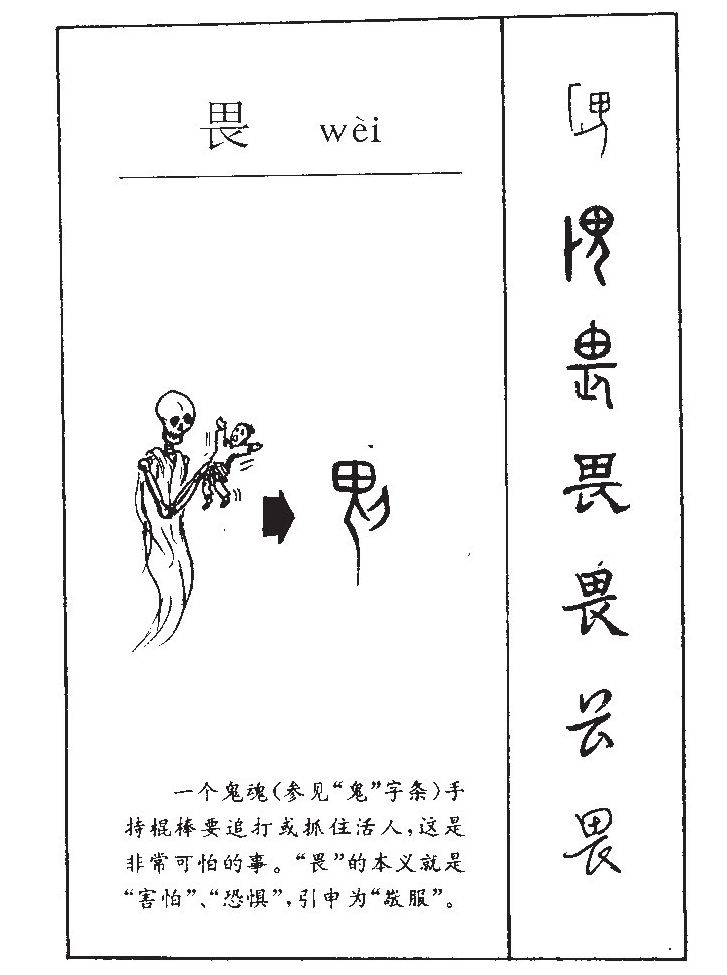 畏 wèi
一个鬼魂(参见“鬼”字条)手
持棍棒要追打或抓住活人,这是
非常可怕的事。“畏”的本义就是
“害怕”、“恐惧”,引申为“敬服”。
畏
畏
畏